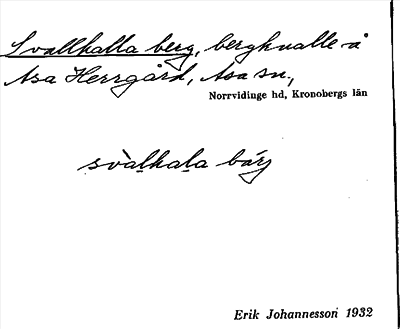 Svallhalla berg, bergknalle å
Asa Herrgård, Asa sn,
Norrvidinge hd, Kronobergs län
svàlhala bárj
Erik Johannesson 1932